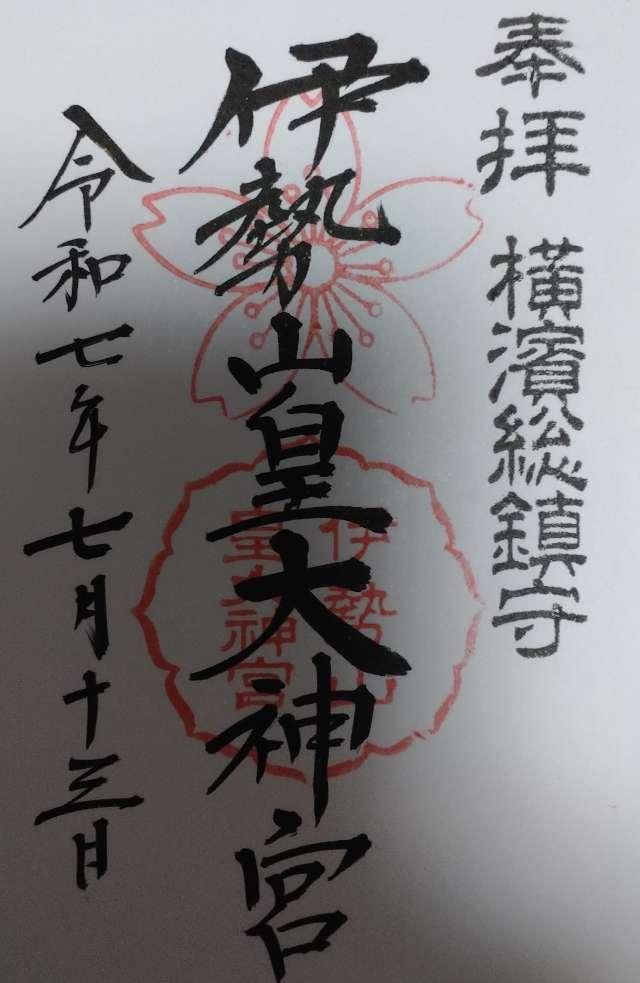 奉拝 横濱総鎮守
伊勢山皇大神宮
伊勢山
皇大神宮
令和七年七月十三日